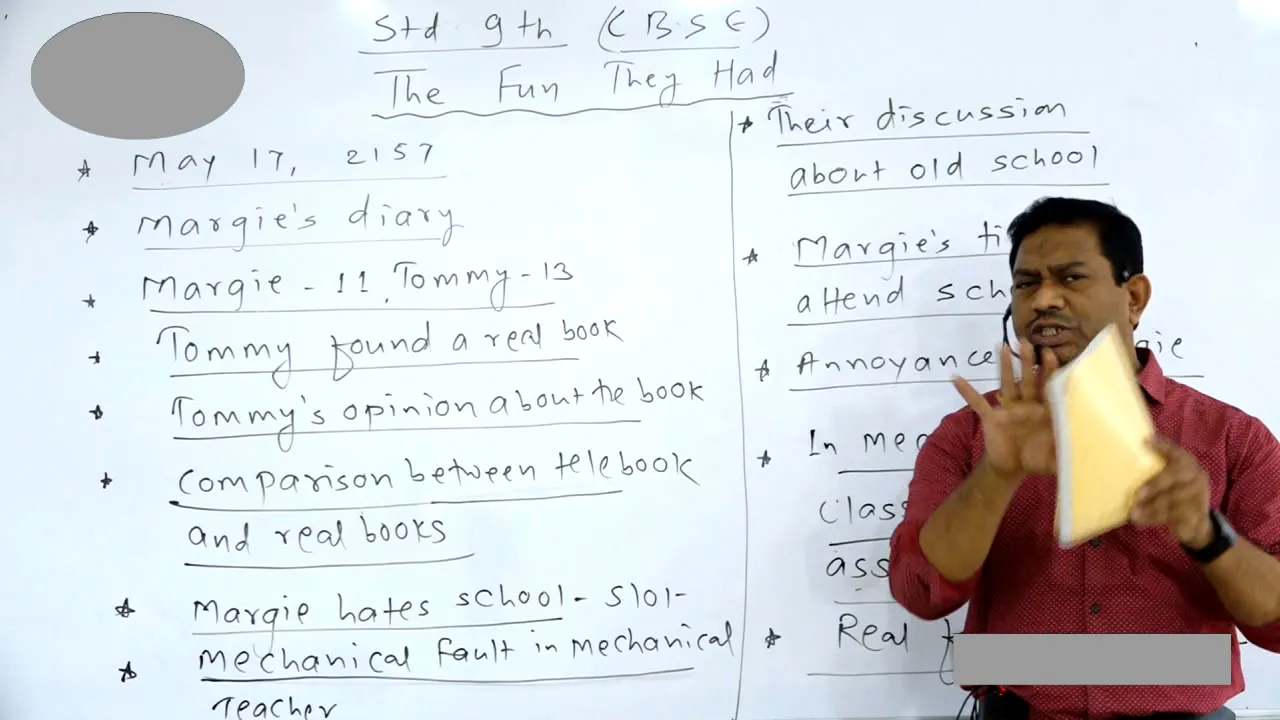 Std 9th (CBSE)
The Fun They Had
★ May 17, 2157
★ Margie's diary
★ Margie - 11, Tommy - 13
★ Tommy found a real book
★ Tommy's opinion about the book
★ Comparison between telebook
and real books
★ Margie hates school - Slot-
★ mechanical fault in mechanical
Teacher
★ Their discussion
about old school
★ Margie's
attend
★ Annoyance
★ In
★ Real